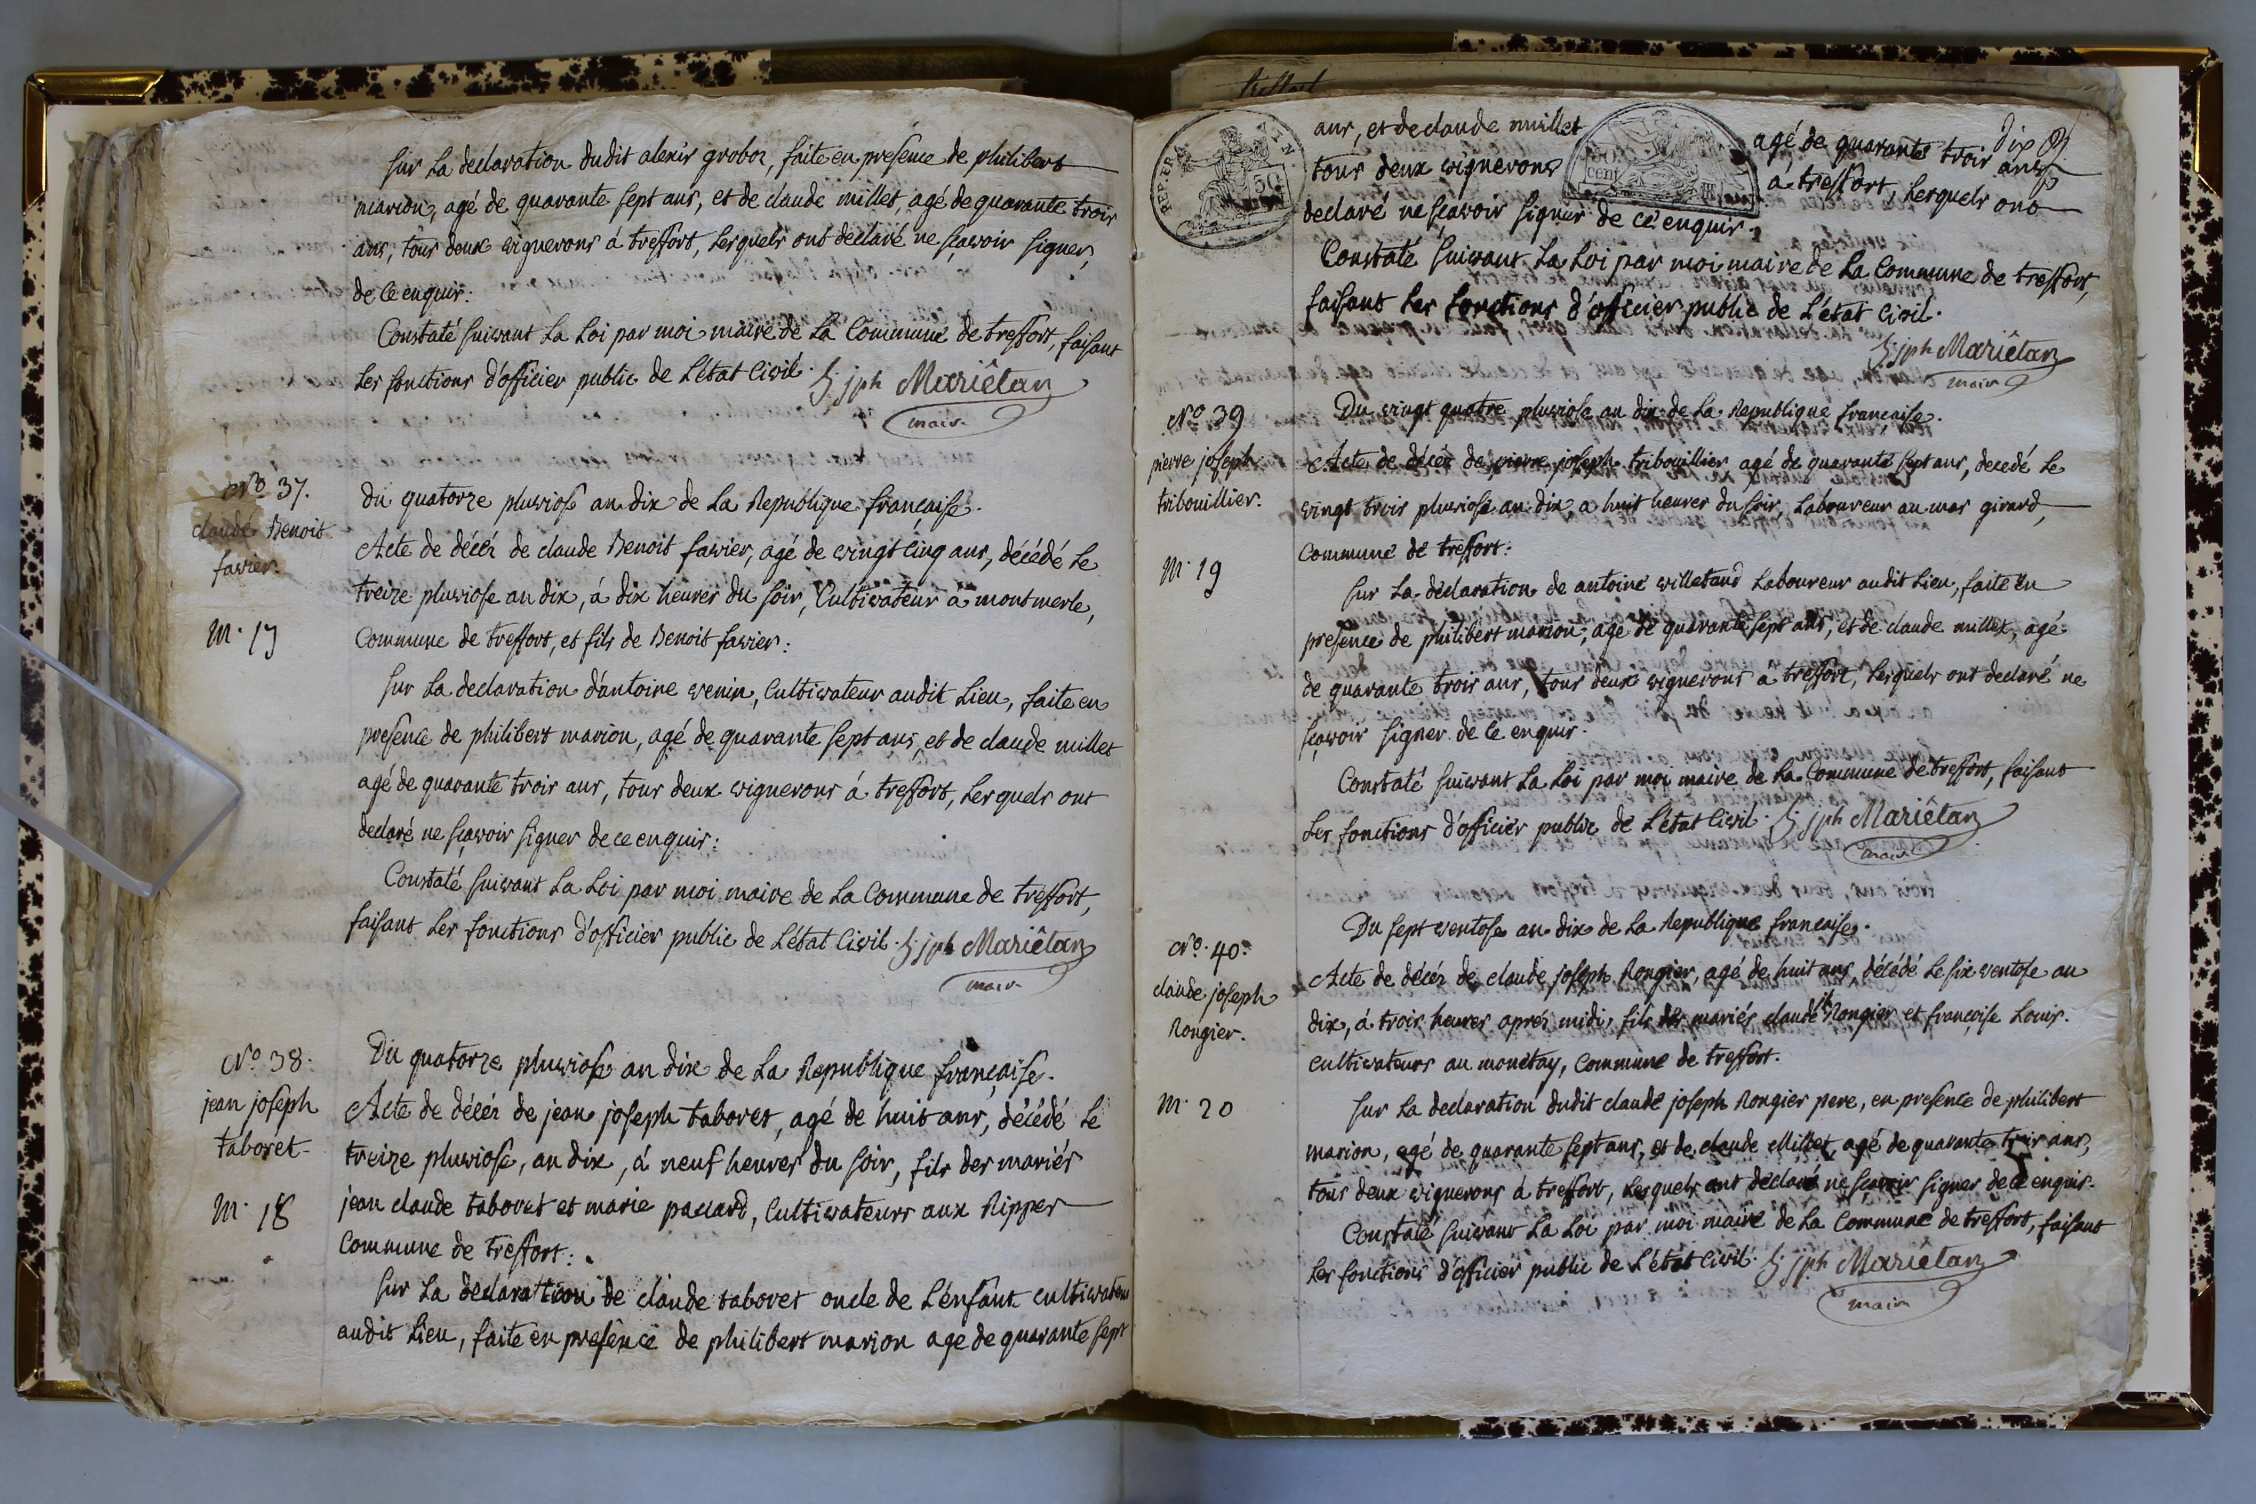 sur la declaration dudit alexis groboz, faite en presence de philibert
marion, agé de quarante sept ans, et de claude millet agé de quarante trois
ans, tous deux vignerons á treffort, lesquels ont declaré ne sçavoir signer,
de ce enquis:
Constaté suivant la Loi par moi maire de la Commune de treffort, faisant
les fonctions d'officier public de L'état Civil. jph Mariêtan
maire
No 37.
claude Benoit
favier.
M. 17
du quatorze pluviose an dix de la Republique française.
Acte de décéz de claude Benoit favier, agé de vingt cinq ans, décédé le
treize pluviose an dix, á dix heures du soir, Cultivateur á montmerle,
Commune de treffort, et fils de Benoit favier:
sur la declaration d'antoine venin, Cultivateur audit Lieu, faite en
presence de philibert marion, agé de quarante sept ans, et de claude millet
agé de quarante trois ans, tous deux vignerons á treffort, Lesquels ont
declaré ne sçavoir signer de ce enquis:
Constaté suivant La Loi par moi maire de la Commune de treffort,
faisant les fonctions d'officier public de L'état Civil. jph Mariêtan
maire
No 38.
jean joseph
taboret
M. 18
Du quatorze pluviose an dix de la Republique française.
Acte de décéz de jean joseph taboret, agé de huit ans, décédé le
treize pluviose, an dix, á neuf heures du soir, fils des mariés
jean claude taboret et marie paccard, Cultivateurs aux Rippes
Commune de treffort:
sur la declaration de claude taboret oncle de L'enfant cultivateur
audit Lieu, faite en presence de philibert marion age de quarante sept
dix
ans, et de claude millet agé de quarante trois ans
tous deux vignerons á treffort, Lesquels ont
declaré ne sçavoir signer de ce enquis.
Constaté suivant La Loi par moi maire de La Commune de treffort,
faisant les fonctions d'officier public de L'état Civil.
jph Mariêtan
maire
No 39
pierre joseph
tribouillier.
M. 19
Du vingt quatre pluviose an dix de la Republique française.
Acte de décéz de pierre joseph tribouillier agé de quarante sept ans, decedé le
vingt trois pluviose an dix, a huit heures du soir, Laboureur au mas girard,
Commune de treffort:
sur la déclaration de antoine villetand Laboureur audit Lieu, faite en
presence de philibert marion, agé de quarante sept ans, et de claude millet, agé
de quarante trois ans, tous deux vignerons á treffort, lesquels ont declaré ne
sçavoir signer de ce enquis.
Constaté suivant La Loi par moi maire de la Commune de treffort, faisant
les fonctions d'officier public de L'état Civil. jph Mariêtan
maire
No. 40.
claude joseph
Rongier.
M. 20
Du sept ventose an dix de la Republique française.
Acte de décéz de claude joseph Rongier, agé de huit ans, décédé le six ventose an
dix, á trois heures aprés midi, fils des mariés claude jh Rongier et françoise Louis.
cultivateurs au monétay, commune de treffort.
sur la declaration dudit claude joseph Rongier pere, en presence de philibert
marion, agé de quarante sept ans, et de claude Millet, agé de quarante trois ans,
tous deux vignerons á treffort, lesquels ont déclaré ne sçavoir signer de ce enquis.
Constaté suivant la Loi par moi maire de la Commune de treffort, faisant
les fonctions d'officier public de L'état Civil. jph Mariêtan
maire